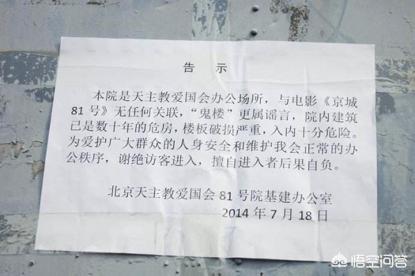 告 示
本院是天主教爱国会办公场所，与电影《京城
81 号》无任何关联，“鬼楼”更属谣言，院内建筑
已是数十年的危房，楼板破损严重，入内十分危险。
为爱护广大群众的人身安全和维护我会正常的办
公秩序，谢绝访客进入，擅自进入者后果自负。
北京天主教爱国会 81 号院基建办公室
2014 年 7 月 18 日
悟空问答